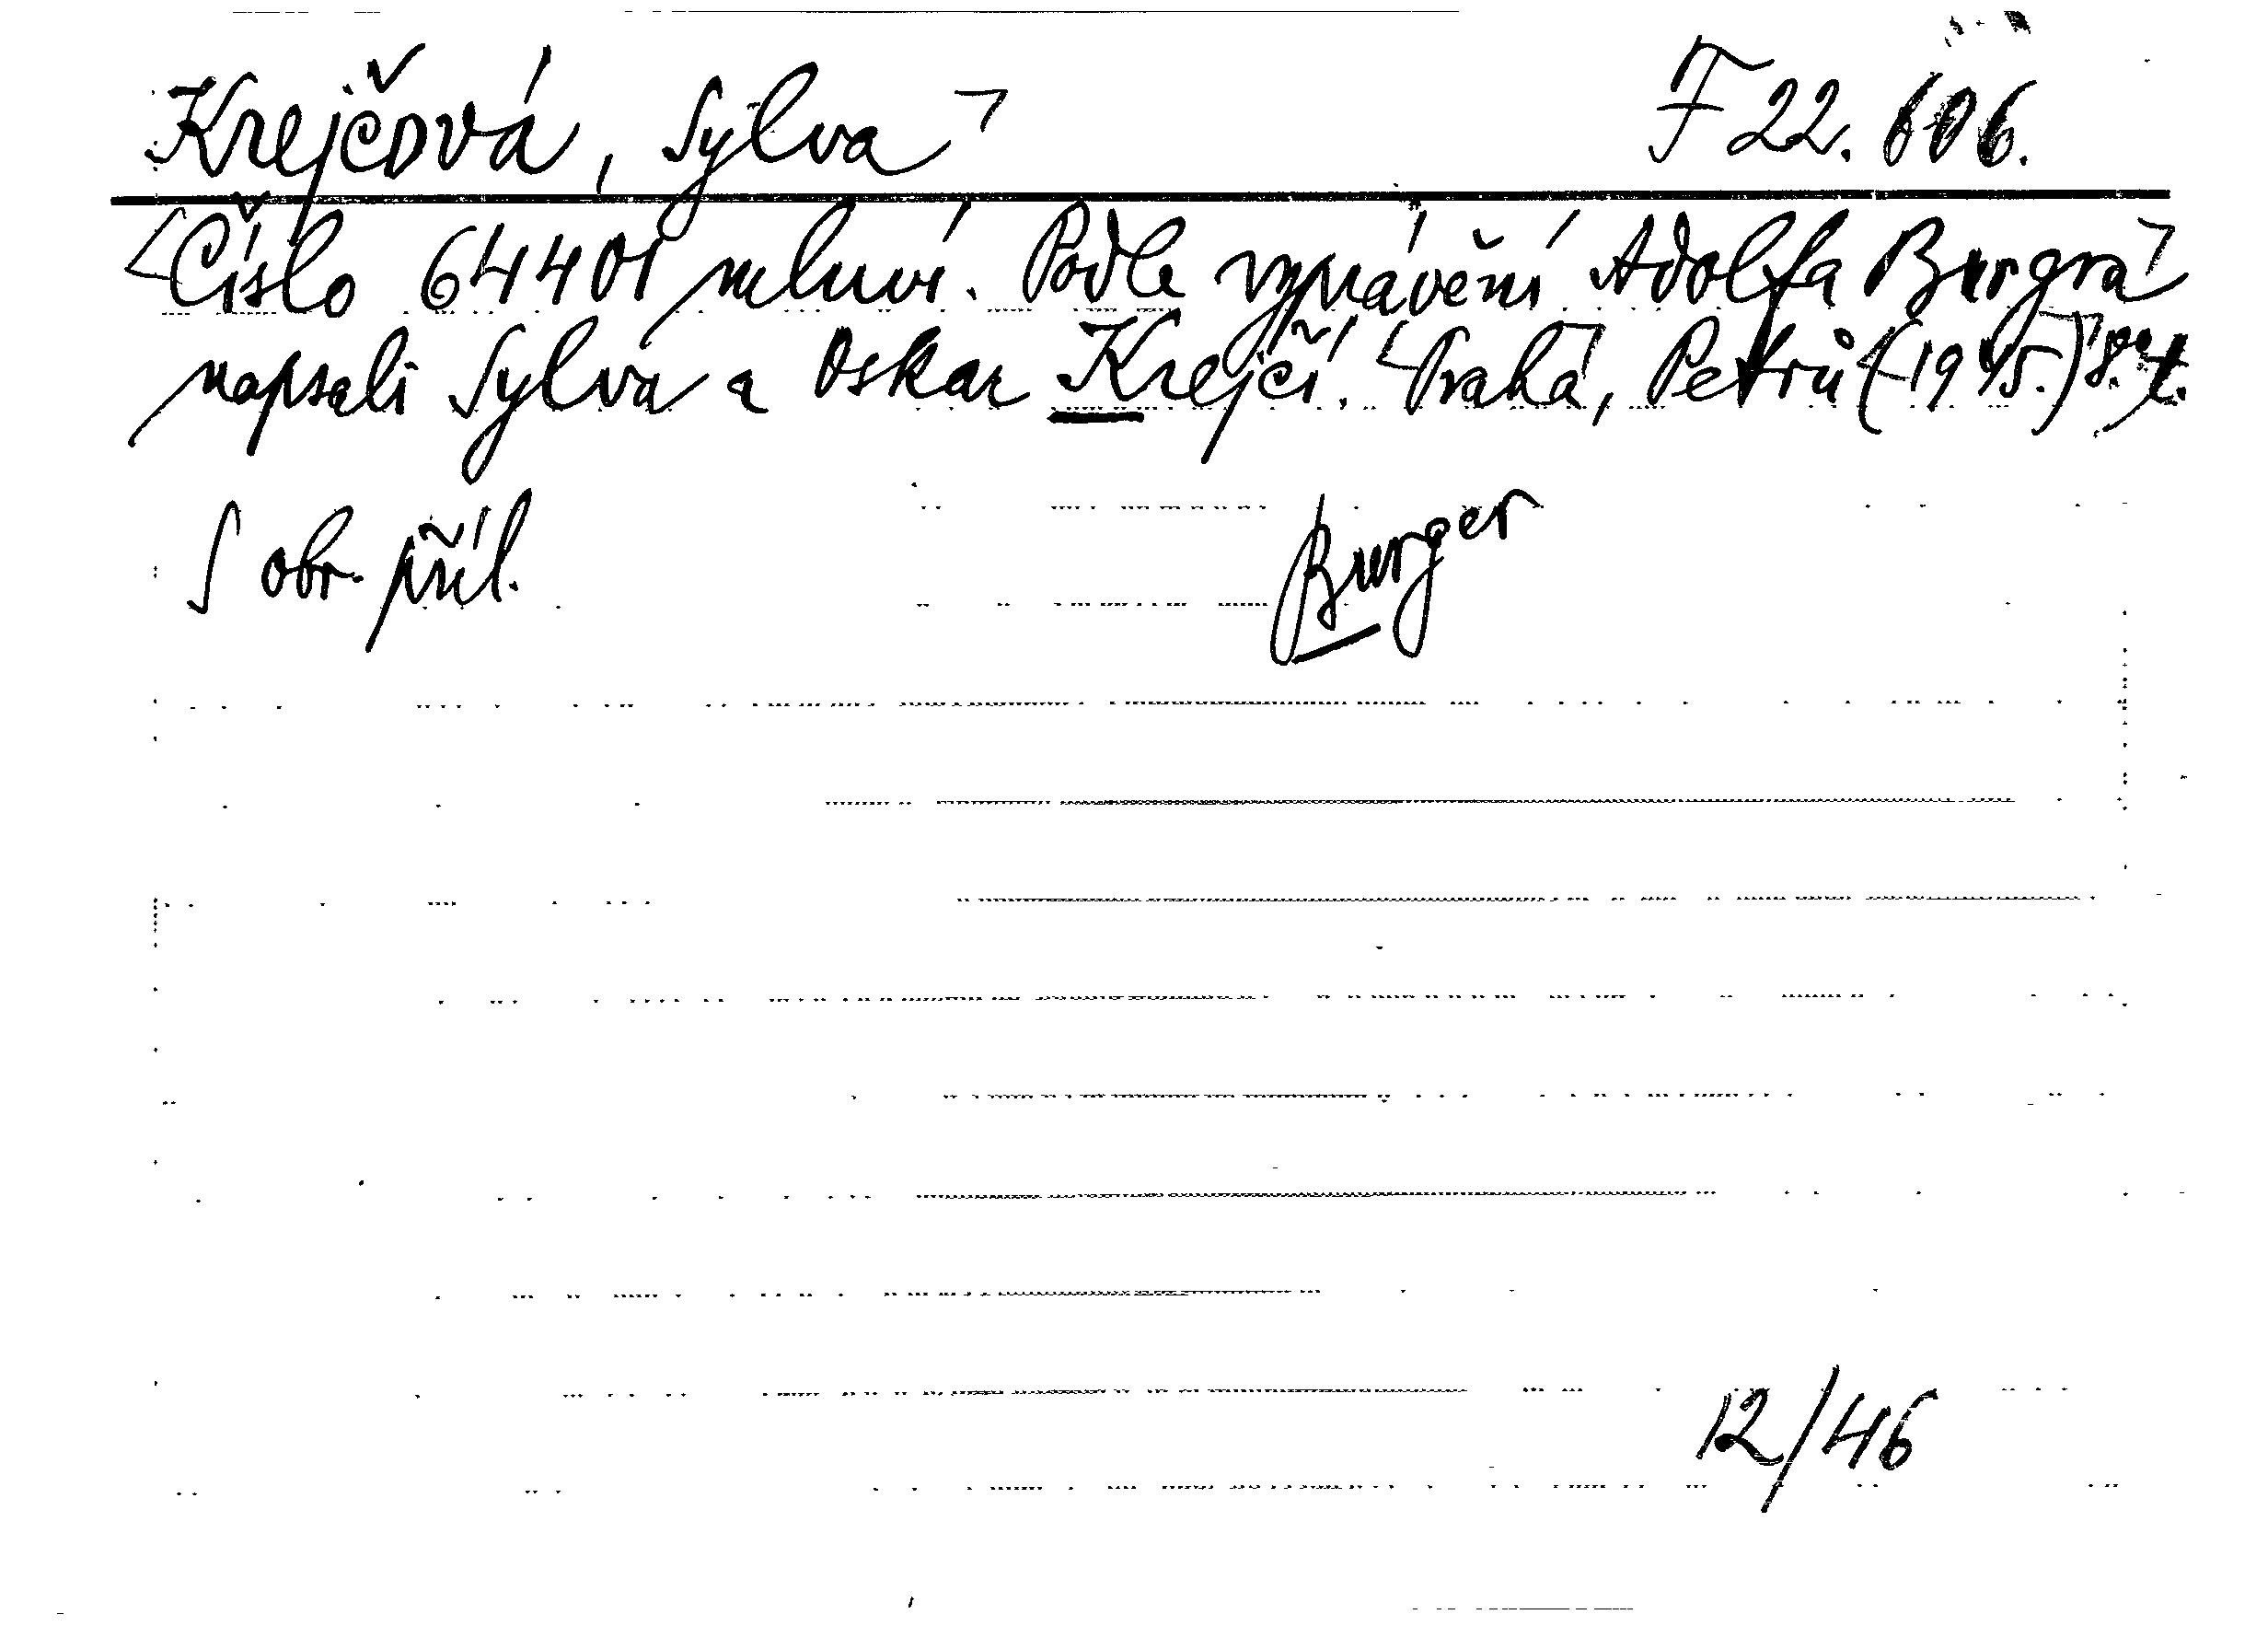 Krejčová, Sylva F 22.606.
Číslo 64401 mluví. Podle vyprávění Adolfa Burgra
napsali Sylva a Oskar Krejčí. Praha, Petrů (1945.) 8.
S obr. příl. Burger
12/46